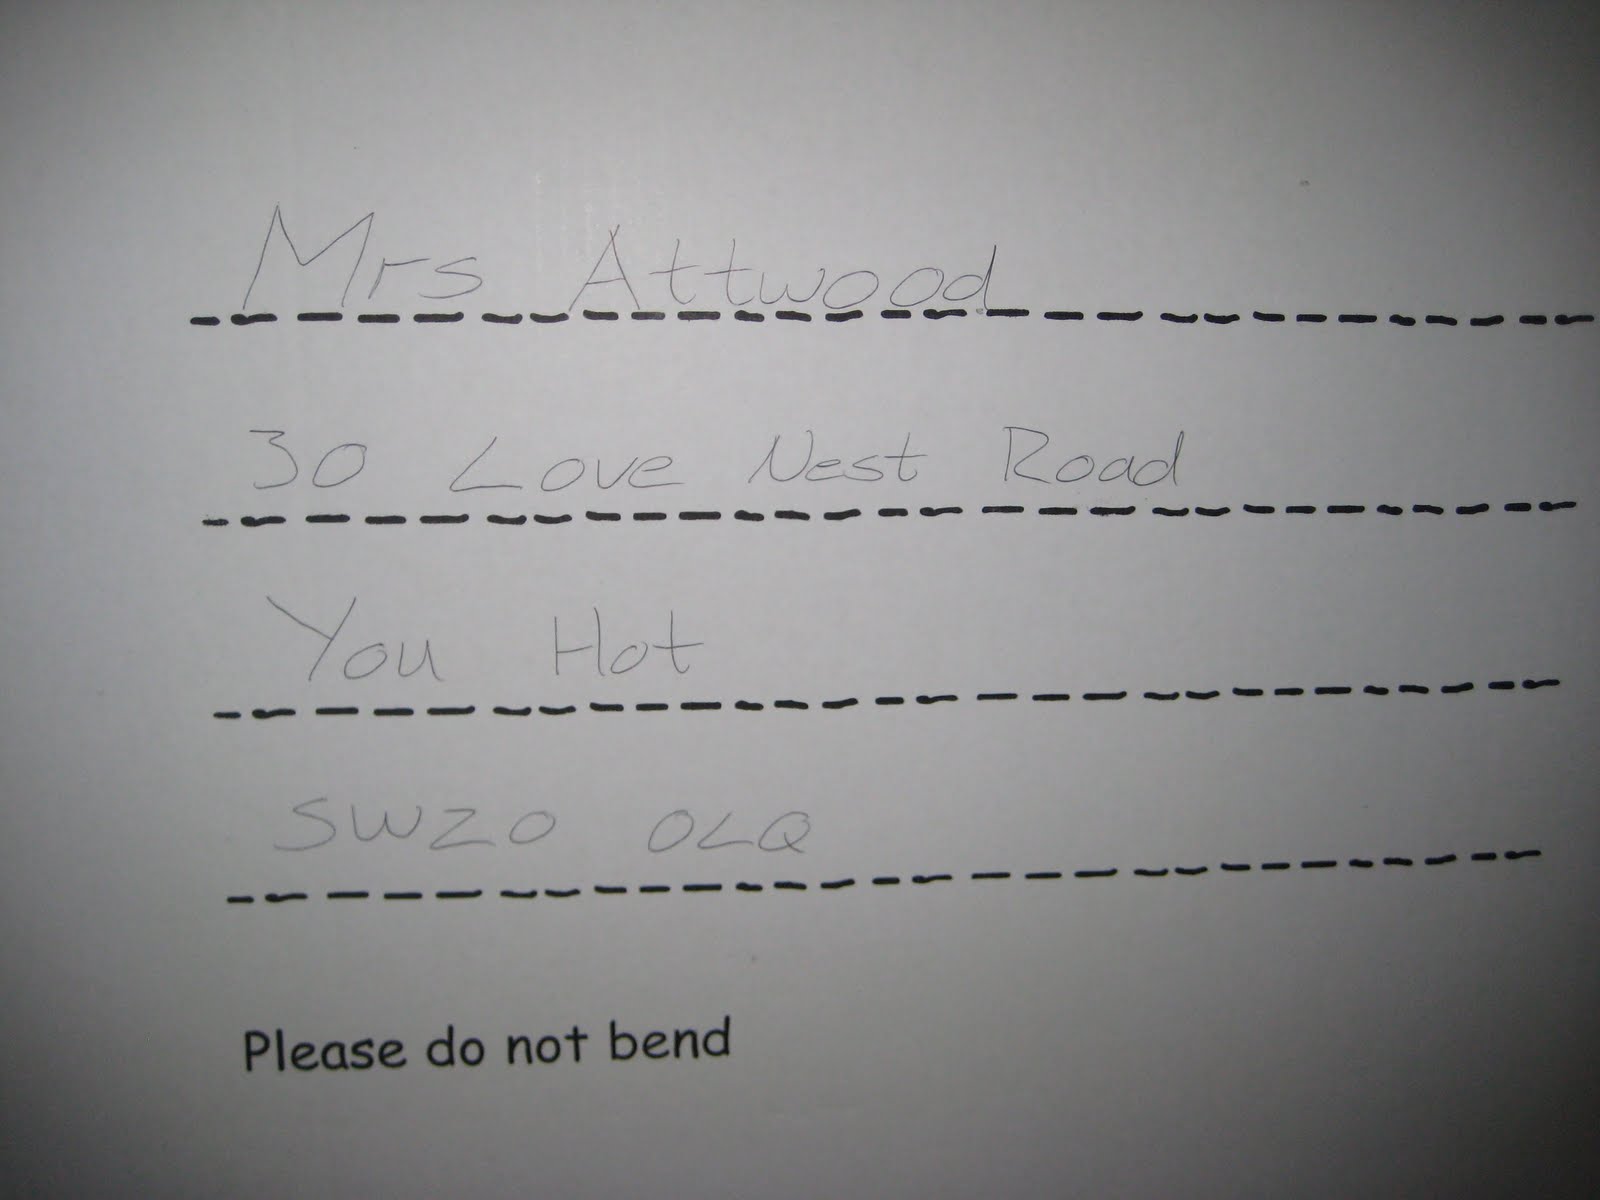 Mrs Attwood
30 Love Nest Road
You Hot
SW20 0LQ
Please do not bend